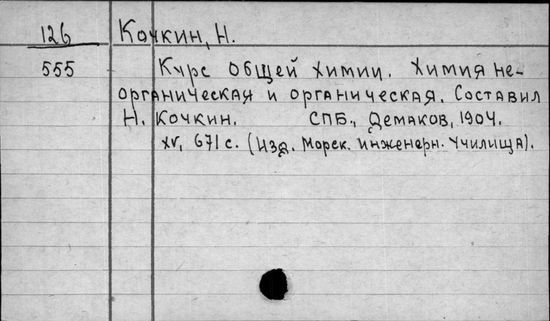 126 Кочкин, Н.
555 Курс общей химии. Химия не-
органическая и органическая. Составил
Н. Кочкин. СПБ., Демаков, 1904.
XV, 671 с. (Изд. Морск. инженерн. училища).